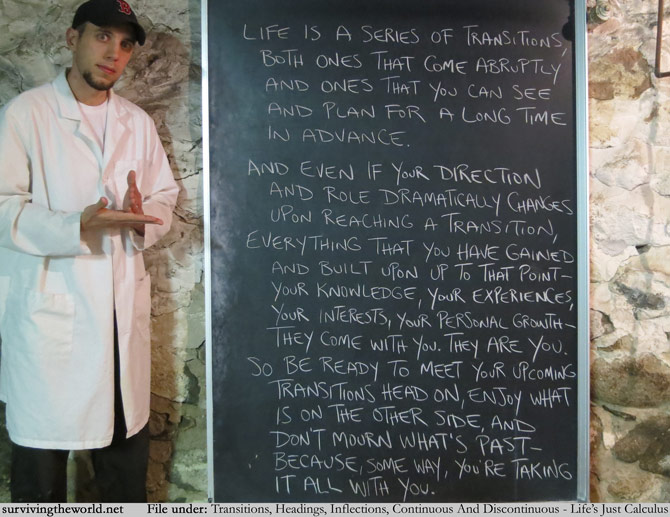 LIFE IS A SERIES OF TRANSITIONS,
BOTH ONES THAT COME ABRUPTLY
AND ONES THAT YOU CAN SEE
AND PLAN FOR A LONG TIME
IN ADVANCE.
AND EVEN IF YOUR DIRECTION
AND ROLE DRAMATICALLY CHANGES
UPON REACHING A TRANSITION,
EVERYTHING THAT YOU HAVE GAINED
AND BUILT UPON UP TO THAT POINT—
YOUR KNOWLEDGE, YOUR EXPERIENCES,
YOUR INTERESTS, YOUR PERSONAL GROWTH—
THEY COME WITH YOU. THEY ARE YOU.
SO BE READY TO MEET YOUR UPCOMING
TRANSITIONS HEAD ON, ENJOY WHAT
IS ON THE OTHER SIDE, AND
DON'T MOURN WHAT'S PAST—
BECAUSE, SOME WAY, YOU'RE TAKING
IT ALL WITH YOU.
survivingtheworld.net File under: Transitions, Headings, Inflections, Continuous And Discontinuous - Life's Just Calculus